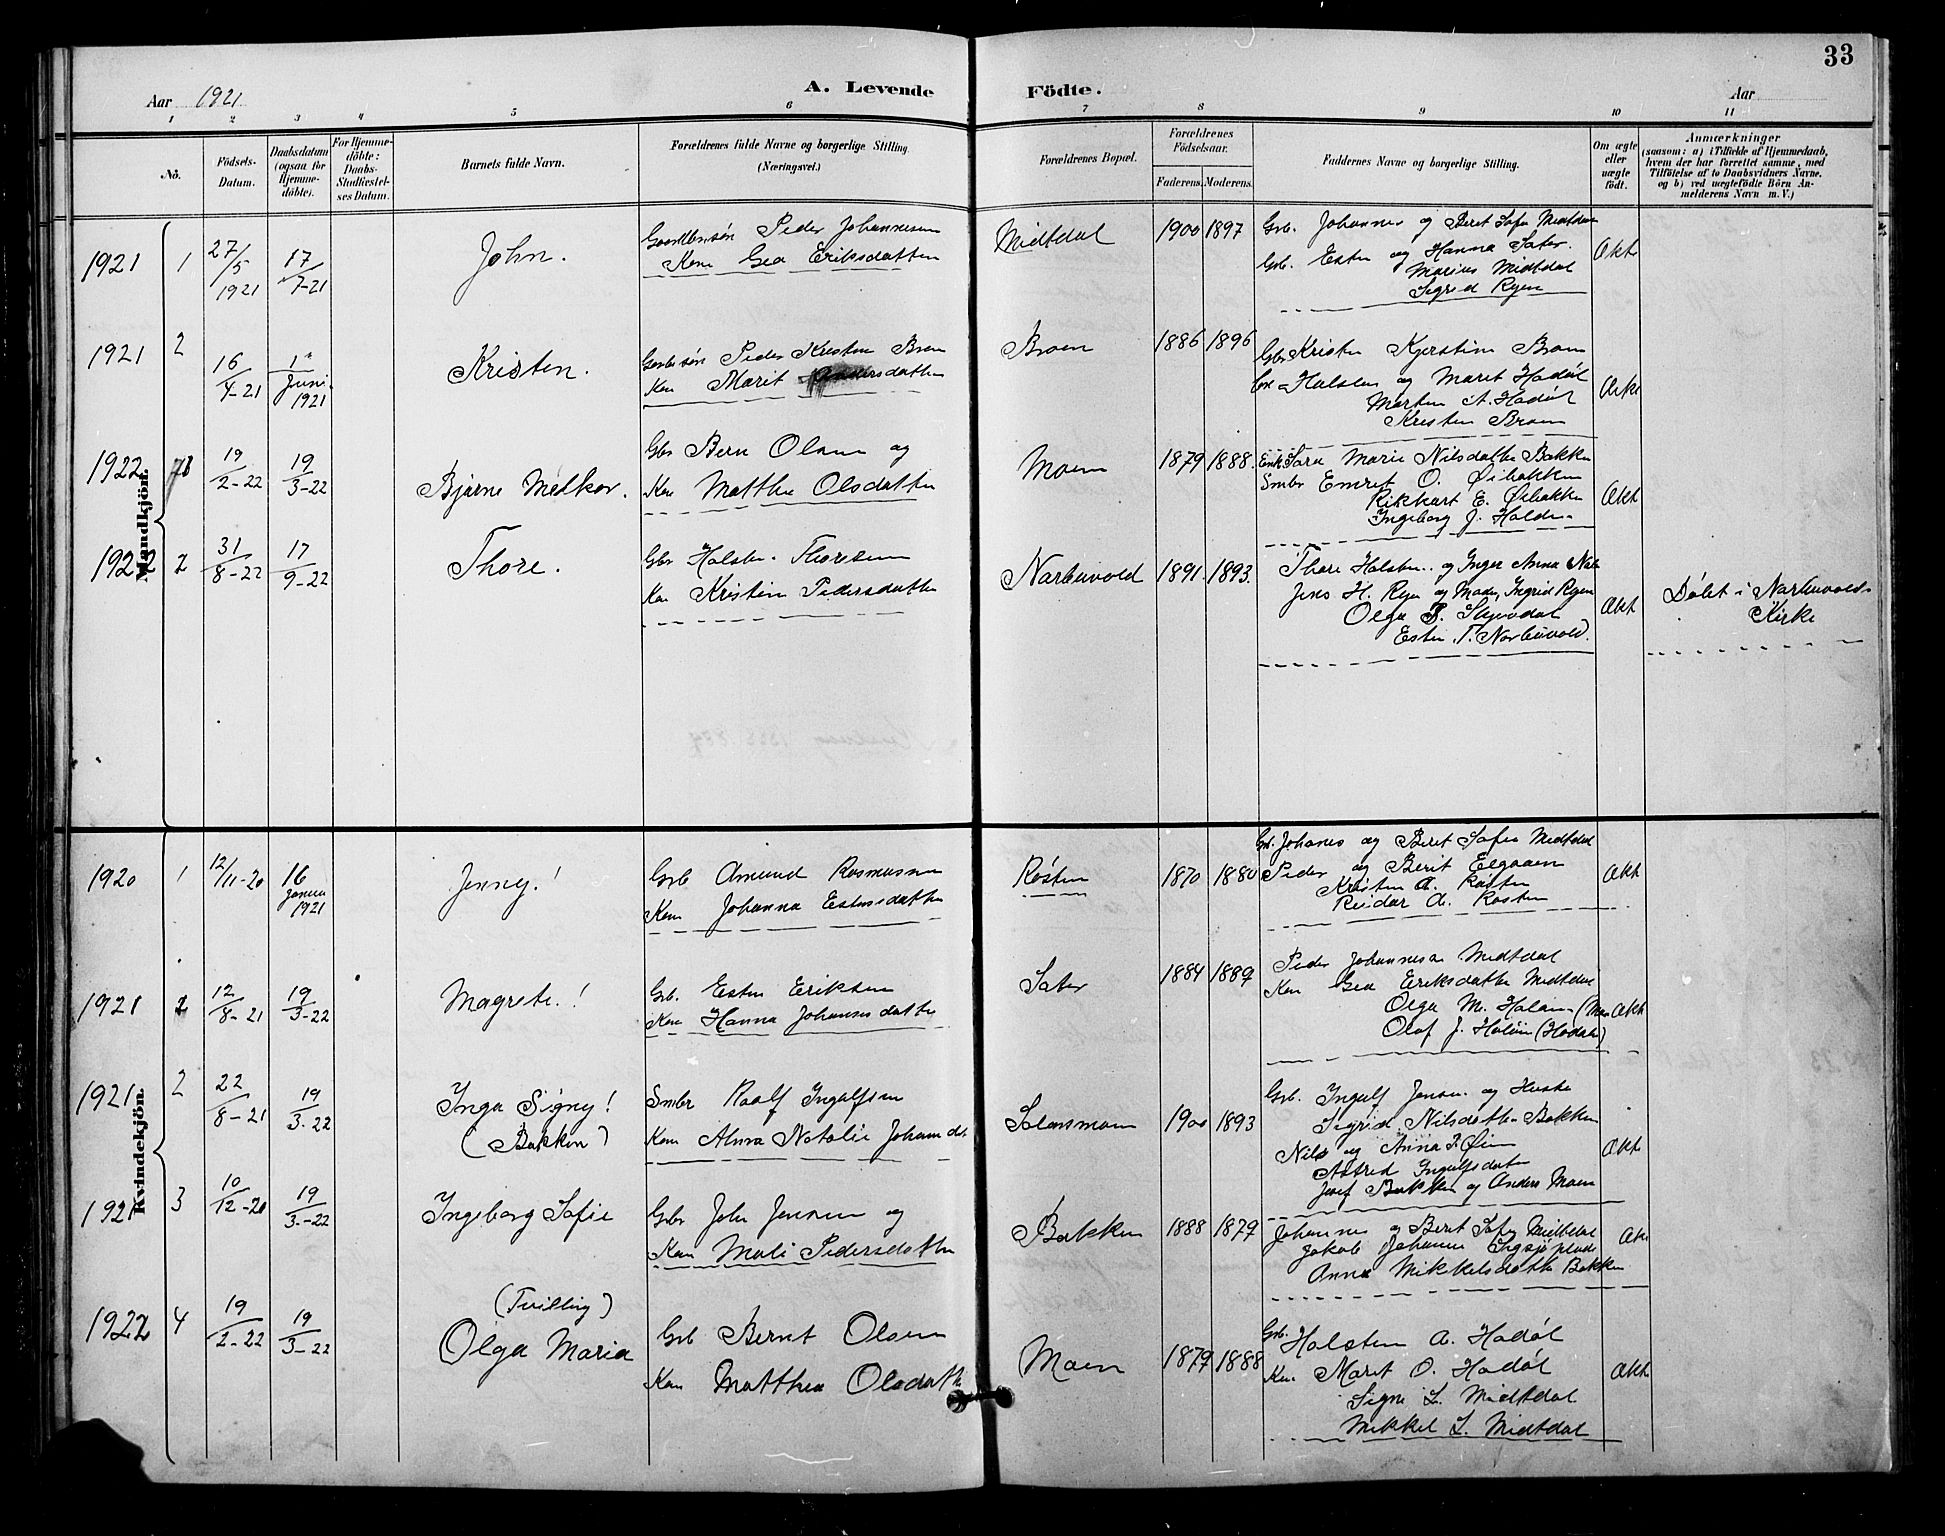 33
Aar 1921
A. Levende Födte.
Aar
1 2 3 4 5 6 7 8 9 10 11
No.
Födsels-Datum.
Daabsdatum (ogsaa for Hjemmedöbte).
For Hjemmedöbte: Daabs-Stadfæstelses Datum.
Barnets fulde Navn.
Forældrenes fulde Navne og borgerlige Stilling (Næringsvei.)
Forældrenes Bopæl.
Forældrenes Födselsaar.
Faderens. Moderens.
Faddernes Navne og borgerlige Stilling.
Om ægte eller uægte födt.
Anmærkninger
(saasom: a) i Tilfælde af Hjemmedaab,
hvem der har forrettet samme, med
Tilföielse af to Daabsvidners Navne,
og b) ved uægtefödte Börn An-
melderens Navn m. V.)
Mandkjön.
1921 1 27/5 1921 17/7-21 John.
Peder Johannesen
Kone Gea Eriksdatter
Midtdal 1900 1897
Grb. Johannes og Beret Sofie Midtdal
Grb. Esten og Hanna Sater.
Marius Midtdal
Sigrid Ryen
Ækt
1921 2 16/4-21 1 Juni 1921 Kristen.
Peder Kristen Broen
Kone Marit Andersdatter
Broen 1886 1896
Grb Kristen Kjerstine Broen
Halsten og Maret Hadøl
Morten A. Hadøl
Kristen Broen
1922 1 19/2-22 19/3-22 Bjarne Melkor.
Gbr Bern Olsen og
Kone Matthea Olsdatter
Moen 1879 1888.
Sara Marie Nilsdatter Bakken
Smbr Emret O. Øibakken
Rikkart E. Øibakken
Ingeborg J. Holden
Ækt
1922 2 31/8-22 17/9-22 Thore.
Gbr Halsten Thoresen
Kone Kristine Pedersdatter
Narbuvold 1891. 1893.
Thore Halsten. og Inger Anna
Jens H. Ryen og Ingrid Ryen
Olga P.
Esten T. Narbuvold.
Ækt
Døbt i Narbuvold
Kirke
Kvindekjön.
1920 1 12/11-20 16 Januar 1921 Jenny!
Grb Amund Rasmussen
Kone Johanna Estensdatter
Røsten 1870 1880
Grb. Johanes og Beret Sofie Midtdal
Peder og Berit Elgaaen
Kristen A. Røsten
Reidar A. Røsten
Ækt
1921 2 12/8-21 19/3-22 Magrete!
Grb. Esten Eriksen
Kone Hanna Johannesdatter
Sater 1884 1889
Peder Johannesen Midtdal
Kone Gea Eriksdatter Midtdal
Olga M. Holøien
Olaf J. Holøien (Hodalen)
Ækt
1921 2 22/8-21 19/3-22 Inga Signy!
(Bakken)
Smbr Roalf Ingulfsen
Kone Alma Natalie Johansdt
1900 1893
Grb. Ingulf Jensen og Hustru
Sigrid Nilsdatter Bakken
Nils og Anna P. Øien
Astrid Ingulfsdatter
Josef Bakken og Anders Moen
Ækt
1921 3 10/12-20 19/3-22 Ingeborg Sofie
Grbr John Jensen og
Kone Mali Pedersdatter
Bakken 1888 1879
Johannes og Beret Sofie Midtdal
Jakob Johansen
Anna Mikkelsdatter Bakken
1922 4 19/2-22 19/3-22 (Tvilling)
Olga Maria
Grb Bernt Olsen
Kone Matthea Olsdatter
Moen 1879 1888
Grb. Halsten A. Hadøl
Kone Maret O. Hadøl
Signe L. Midtdal
Mikkel L. Midtdal
Ækt